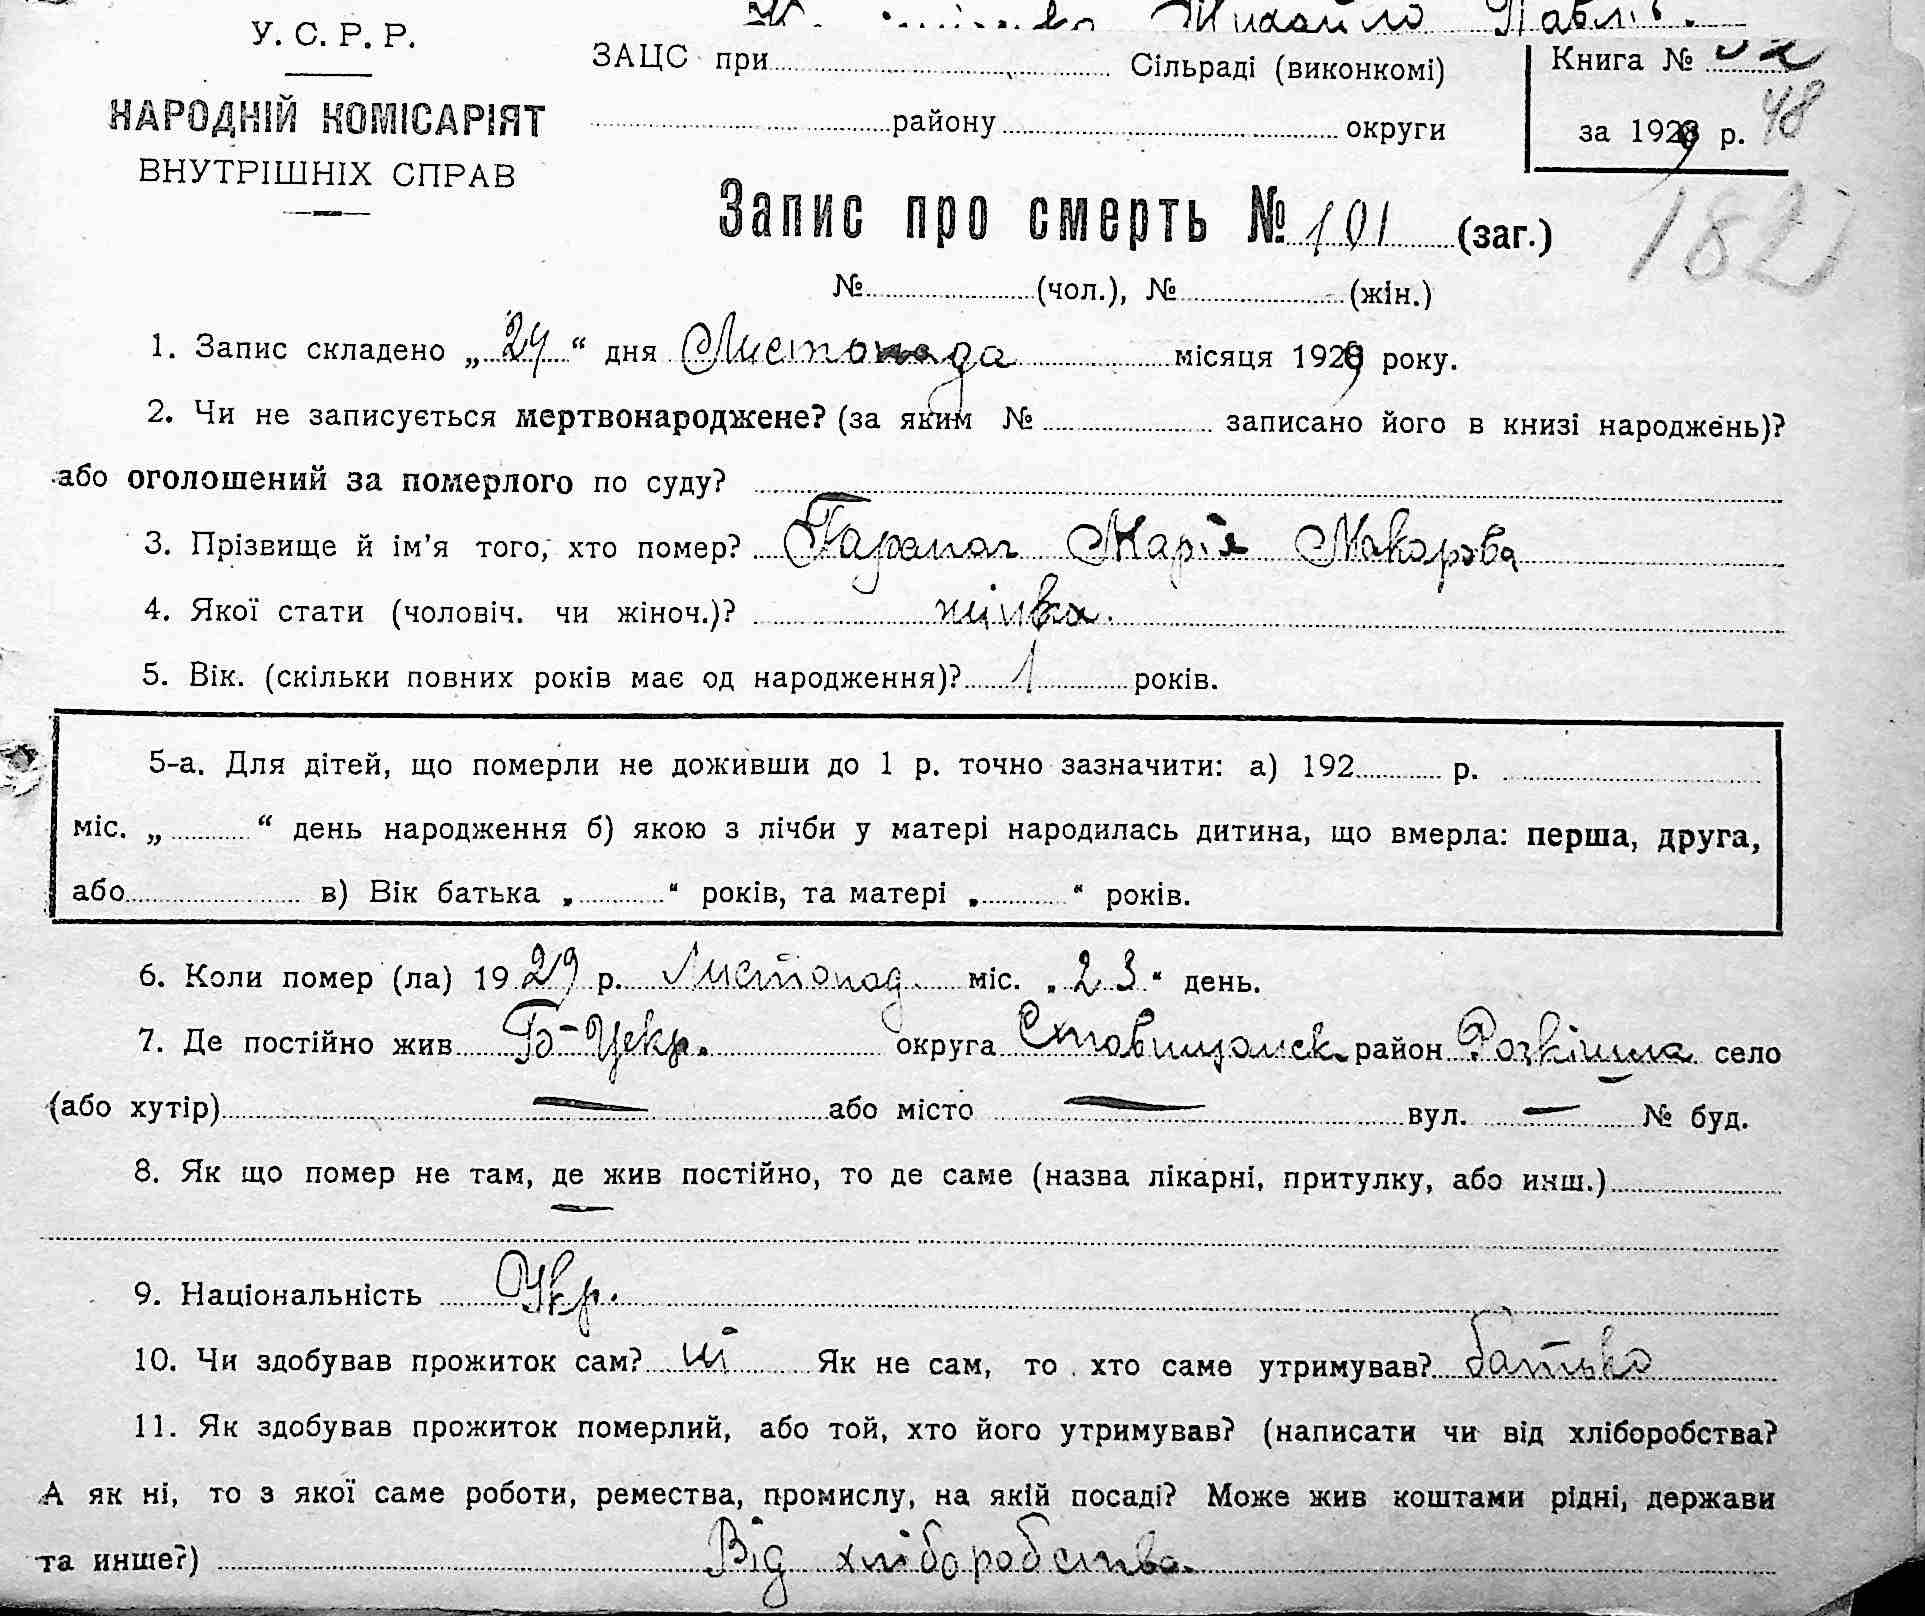 Михайло Павлів.
У. С. Р. Р.
ЗАЦС при Сільраді (виконкомі)
Книга №
НАРОДНІЙ КОМІСАРІЯТ
району округи
за 1929 р. 48
ВНУТРІШНІХ СПРАВ
Запис про смерть № 101 (заг.)
182
№ (чол.), № (жін.)
1. Запис складено „24“ дня Листопада місяця 1929 року.
2. Чи не записується мертвонароджене? (за яким № записано його в книзі народжень)?
або оголошений за померлого по суду?
3. Прізвище й ім’я того, хто помер? Марія Макарова
4. Якої стати (чоловіч. чи жіноч.)? жінка.
5. Вік. (скільки повних років має од народження)? 1 років.
5-а. Для дітей, що померли не доживши до 1 р. точно зазначити: а) 192 р.
міс. „ “ день народження б) якою з лічби у матері народилась дитина, що вмерла: перша, друга,
або в) Вік батька „ “ років, та матері „ “ років.
6. Коли помер (ла) 1929 р. Листопад міс. „23“ день.
7. Де постійно жив Б-Церк. округа Ставищанск район Розкішна село
(або хутір) — або місто — вул. — № буд.
8. Як що помер не там, де жив постійно, то де саме (назва лікарні, притулку, або инш.)
—
9. Національність Укр.
10. Чи здобував прожиток сам? ні Як не сам, то хто саме утримував? батько
11. Як здобував прожиток померлий, або той, хто його утримував? (написати чи від хліборобства?
А як ні, то з якої саме роботи, ремества, промислу, на якій посаді? Може жив коштами рідні, держави
та инше?) Від хліборобства.